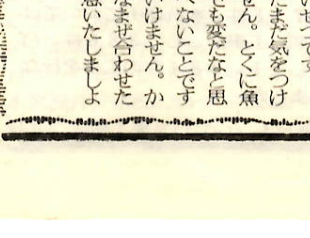 いせつです
たまだ気をつけ
せん。とくに魚
でも変だなと思
べないことです
いけません。か
なまぜ合わせた
意いたしましよ